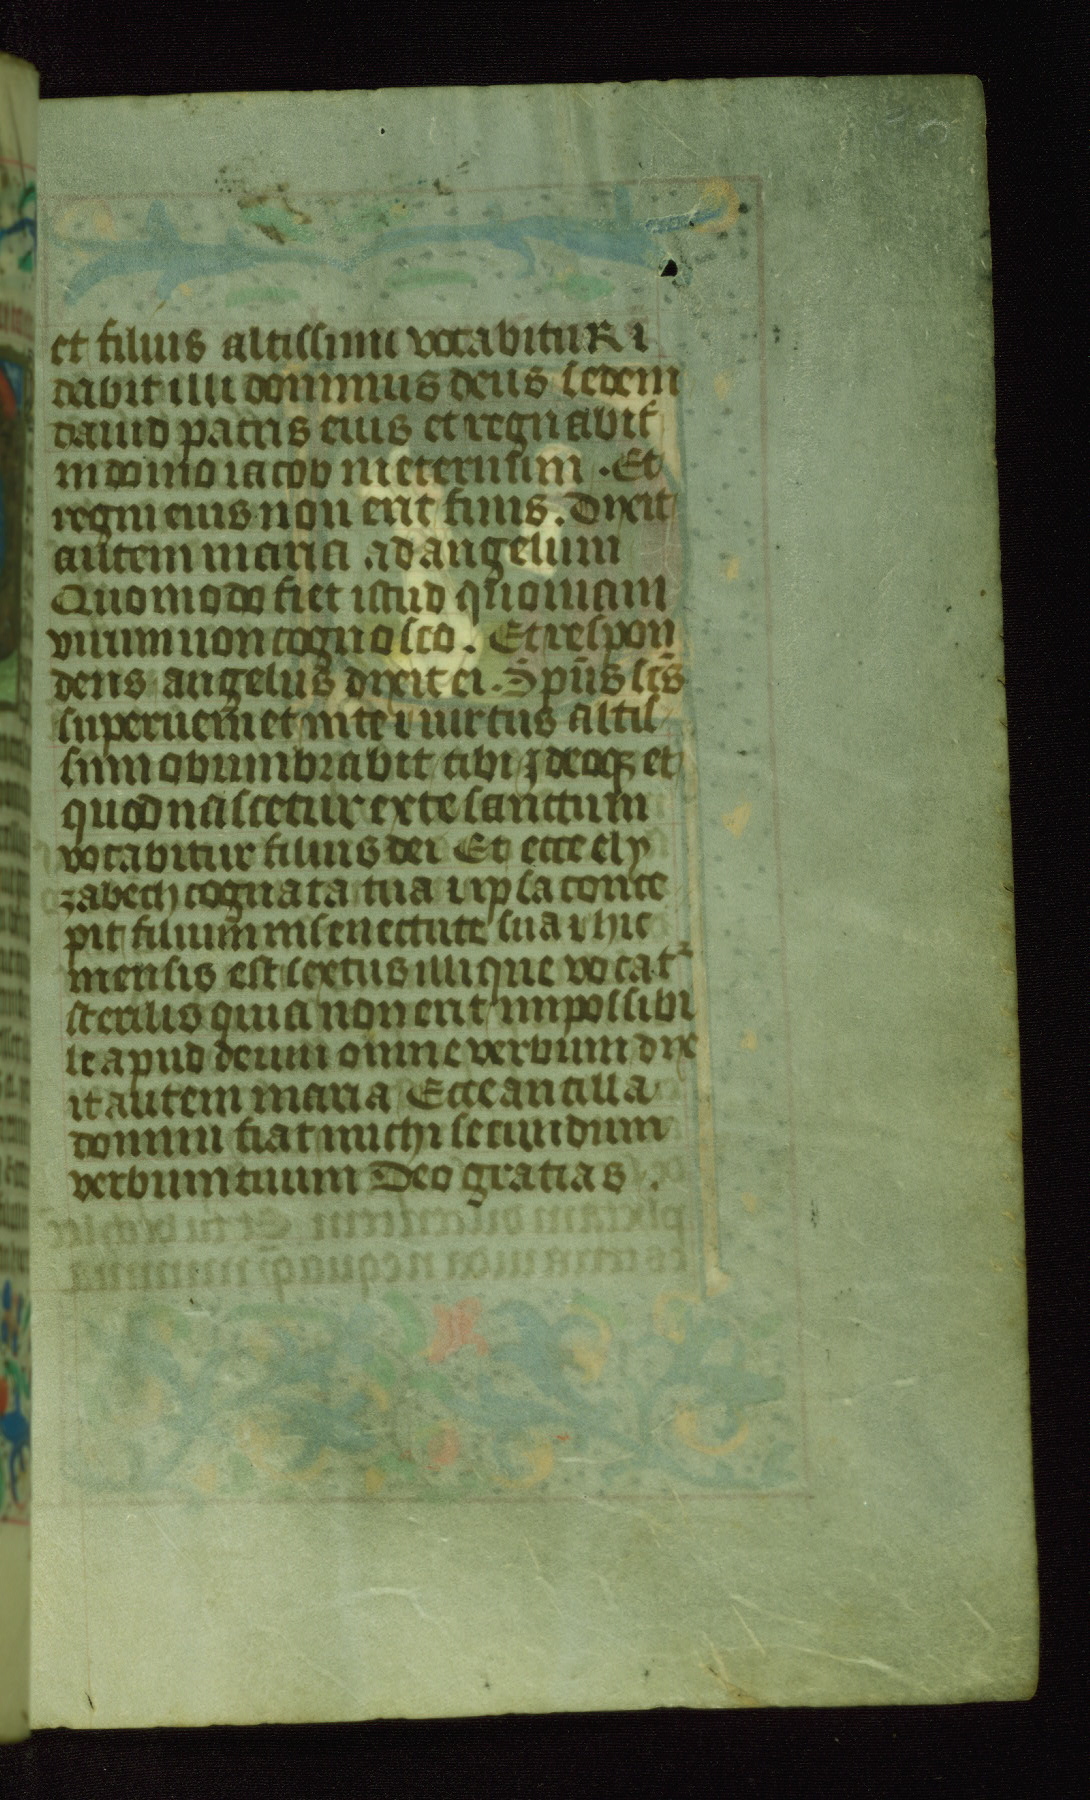 et filius altissimi vocabituR ⁊
dabit illi dominus deus sedem
dauid patris eius et regnabit̉
in domo iacob in eternum . Et
regni eius non erit finis. Dixit
autem maria ad angelum
Quomodo fiet istud quoniam
uirum non cognosco. Et respon
dens angelus dixit ei. Sp̄us sc̄s
superueniet in te ⁊ uirtus altis
simi obumbrabit tibi Ideoqꝫ et
quod nascetur ex te sanctum
vocabitur filius dei Et ecce ely
zabeth cognata tua ⁊ ip̄sa conce
pit filium in senectute sua ⁊ hic
mensis est sextus illi que vocat᷑
sterilis quia non erit impossibi
le apud deum omne verbum dix
it autem maria Ecce ancilla
domini fiat michi secundum
verbum tuum Deo gratias .